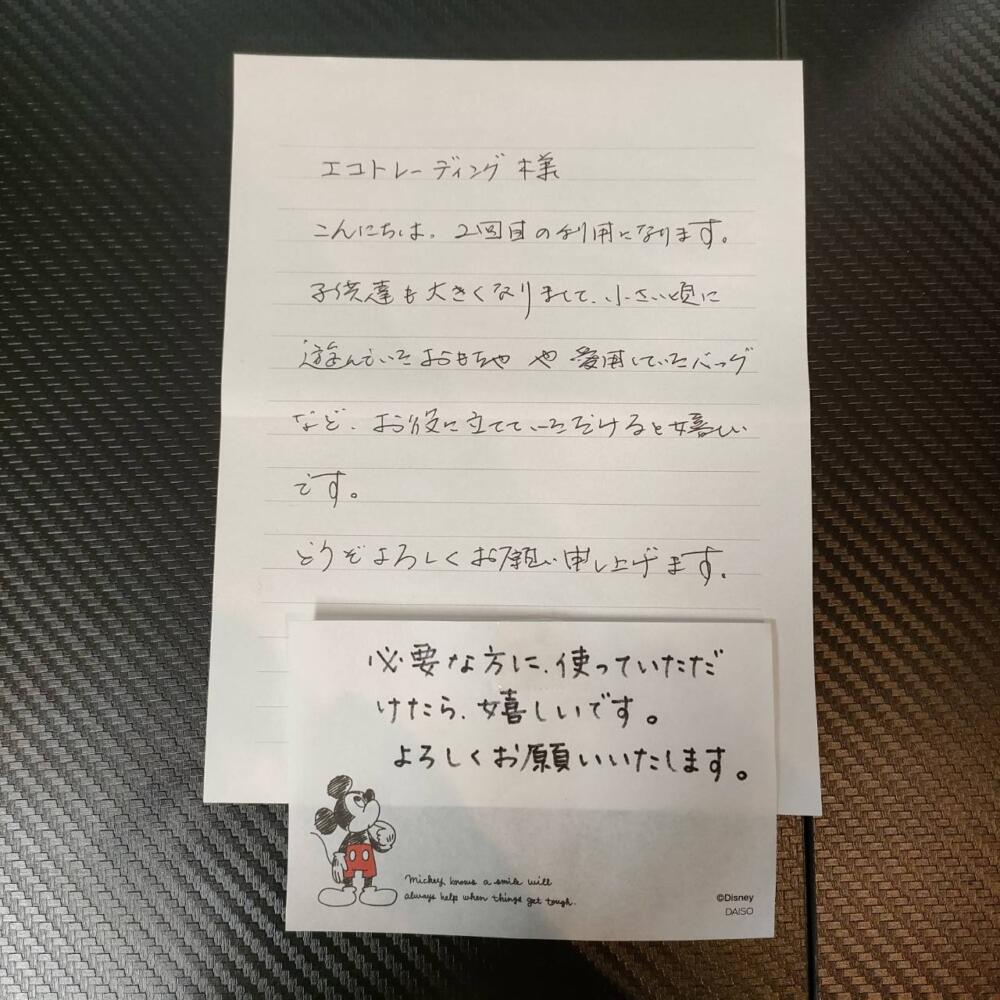 エコトレーディング様
こんにちは。2回目の利用になります。
子供達も大きくなりまして、小さい頃に
遊んでいたおもちゃや愛用していたバッグ
など、お役に立てていただけると嬉しい
です。
どうぞよろしくお願い申し上げます。
必要な方に、使っていただだ
けたら、嬉しいです。
よろしくお願いいたします。
Mickey knows a smile will
always help when things get tough.
©Disney
DAISO